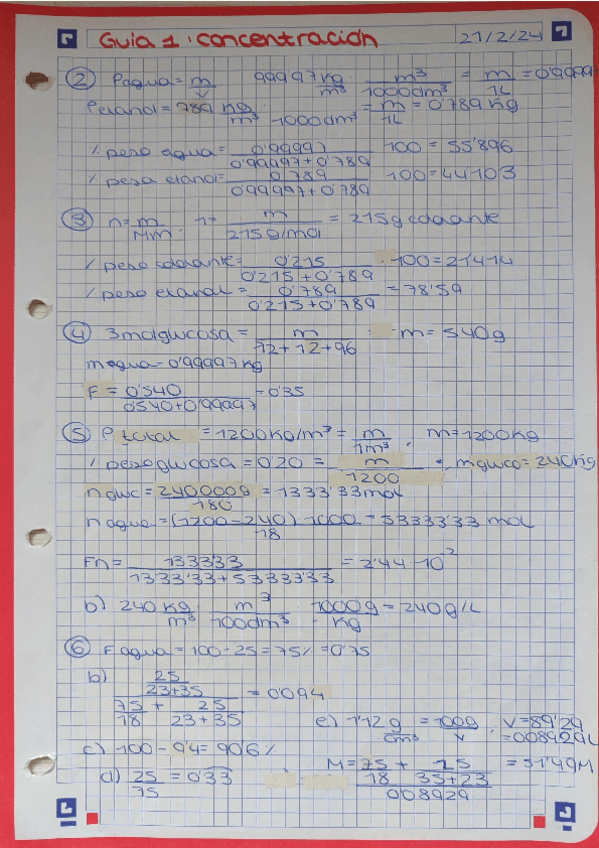 Guia 1: concentración 21/2/24
② ρagua = m/v 999'97 kg/m³ · m³/1000dm³ = m/1L = 0'9999
ρetanol = 789 kg/m³ · 1000dm³ = m/1L = 0'789 kg
% peso agua = 0'99997/(0'99997+0'789) · 100 = 55'896
% peso etanol = 0'789/(0'99997+0'789) · 100 = 44'103
③ n = m/Mm ; 1 = m/(215 g/mol) = 215g colorante
% peso colorante = 0'215/(0'215+0'789) · 100 = 21'414
% peso etanol = 0'789/(0'215+0'789) = 78'59
④ 3molglucosa = m/(72+12+96) m = 540g
magua = 0'99997 kg
F = 0'540/(0'540+0'99997) = 0'35
⑤ ρ total = 1200kg/m³ = m/1m³ , m = 1200kg
% peso glucosa = 0'20 = m/1200 ; mgluco = 240kg
n gluc = 240000g/180 = 1333'33mol
n agua = (1200-240)·1000/18 = 53333'33 mol
Fn = 1333'33/(1333'33+53333'33) = 2'44·10⁻²
b) 240 kg/m³ · m³/1000dm³ · 1000g/kg = 240g/L
⑥ F agua = 100-25 = 75% = 0'75
b) (25/(23+35))/(75/18 + 25/(23+35)) = 0'094
e) 1'12 g/cm³ = 100g/v , V = 89'29 = 0'08929L
c) 100 - 9'4 = 90'6%
M = (75/18 + 25/(35+23))/0'08929 = 51'49M
d) 25/75 = 0'33